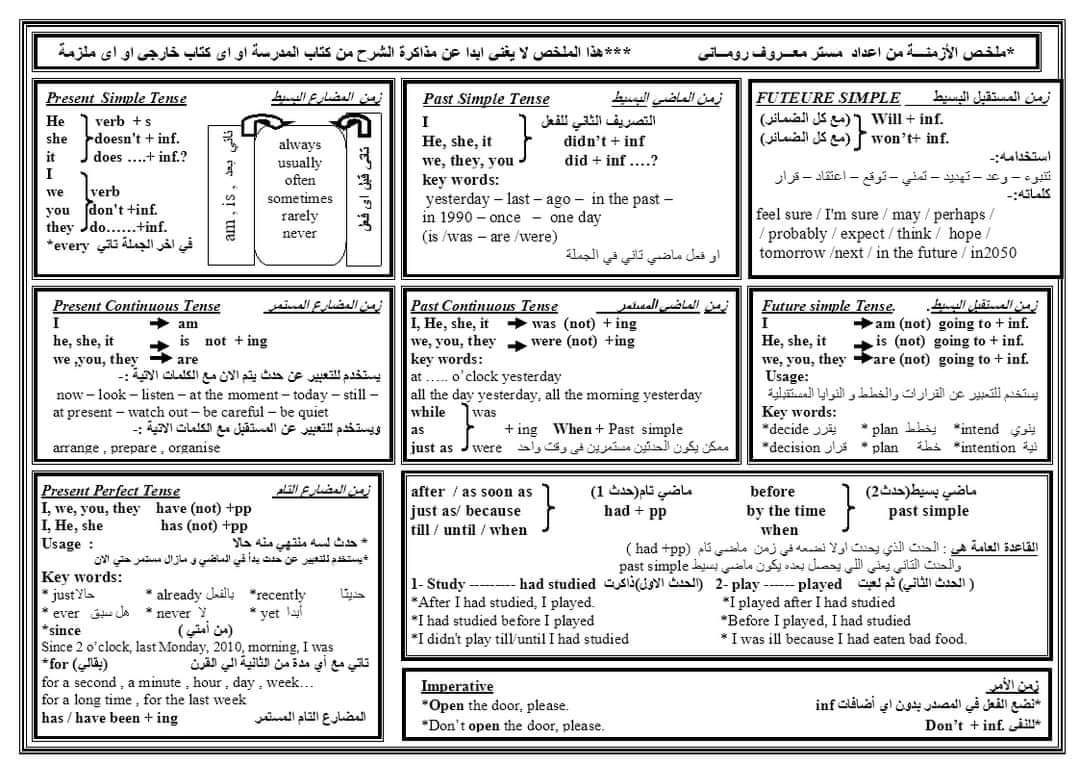 *ملخص الأزمنـــة من اعداد مستر معـــروف رومـــانى ***هذا الملخص لا يغنى ابدا عن مذاكرة الشرح من كتاب المدرسة او اى كتاب خارجى او اى ملزمة
Present Simple Tense زمن المضارع البسيط
He verb + s
she doesn't + inf.
it does ….+ inf.?
I
we verb
you don't +inf.
they do……+inf.
*every في اخر الجملة تاتي
تاتي بعد am , is ,
always
usually
often
sometimes
rarely
never
تاتى قبل اى فعل
Past Simple Tense زمن الماضي البسيط
I التصريف الثاني للفعل
He, she, it didn't + inf
we, they, you did + inf ….?
key words:
yesterday – last – ago – in the past –
in 1990 – once – one day
(is /was – are /were)
او فعل ماضي تاتي في الجملة
FUTEURE SIMPLE زمن المستقبل البسيط
(مع كل الضمائر) Will + inf.
(مع كل الضمائر) won't+ inf.
استخدامه:-
تنبوء – وعد – تهديد – تمني – توقع – اعتقاد – قرار
كلماته:-
feel sure / I'm sure / may / perhaps /
/ probably / expect / think / hope /
tomorrow /next / in the future / in2050
Present Continuous Tense زمن المضارع المستمر
I am
he, she, it is not + ing
we ,you, they are
يستخدم للتعبير عن حدث يتم الان مع الكلمات الاتية :-
now – look – listen – at the moment – today – still –
at present – watch out – be careful – be quiet
ويستخدم للتعبير عن المستقبل مع الكلمات الاتية :-
arrange , prepare , organise
Past Continuous Tense زمن الماضي المستمر
I, He, she, it was (not) + ing
we, you, they were (not) +ing
key words:
at ….. o'clock yesterday
all the day yesterday, all the morning yesterday
while was
as + ing When + Past simple
just as were ممكن يكون الحدثين مستمرين فى وقت واحد
Future simple Tense. زمن المستقبل البسيط.
I am (not) going to + inf.
He, she, it is (not) going to + inf.
we, you, they are (not) going to + inf.
Usage:
يستخدم للتعبير عن القرارات والخطط و النوايا المستقبلية
Key words:
*decide يقرر *plan يخطط *intend ينوي
*decision قرار *plan خطة *intention نية
Present Perfect Tense زمن المضارع التام
I, we, you, they have (not) +pp
I, He, she has (not) +pp
Usage : * حدث لسه منتهي منه حالا
*يستخدم للتعبير عن حدث بدأ في الماضي و مازال مستمر حتي الان
Key words:
* just حالا * already بالفعل *recently حديثا
* ever هل سبق * never لا * yet أبدا
*since (من أمتي )
Since 2 o'clock, last Monday, 2010, morning, I was
*for (بقالي) تاتي مع أي مدة من الثانية الي القرن
for a second , a minute , hour , day , week…
for a long time , for the last week
has / have been + ing المضارع التام المستمر
after / as soon as ماضي تام(حدث 1) before ماضي بسيط(حدث2)
just as/ because had + pp by the time past simple
till / until / when when
القاعدة العامة هي : الحدث الذي يحدث اولا نضعه في زمن ماضي تام (had +pp )
والحدث التاني يعني اللي يحصل بعده يكون ماضي بسيط past simple
1- Study --------- had studied (الحدث الاول)ذاكرت 2- play ------ played ( الحدث الثاني) ثم لعبت
*After I had studied, I played. *I played after I had studied
*I had studied before I played *Before I played, I had studied
*I didn't play till/until I had studied * I was ill because I had eaten bad food.
Imperative زمن الأمر
*Open the door, please. *نضع الفعل في المصدر بدون اي أضافات inf
*Don't open the door, please. *للنفى Don't + inf.